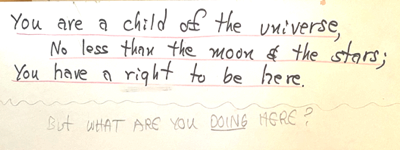 You are a child of the universe,
No less than the moon & the stars;
You have a right to be here.
But WHAT ARE YOU DOING HERE?